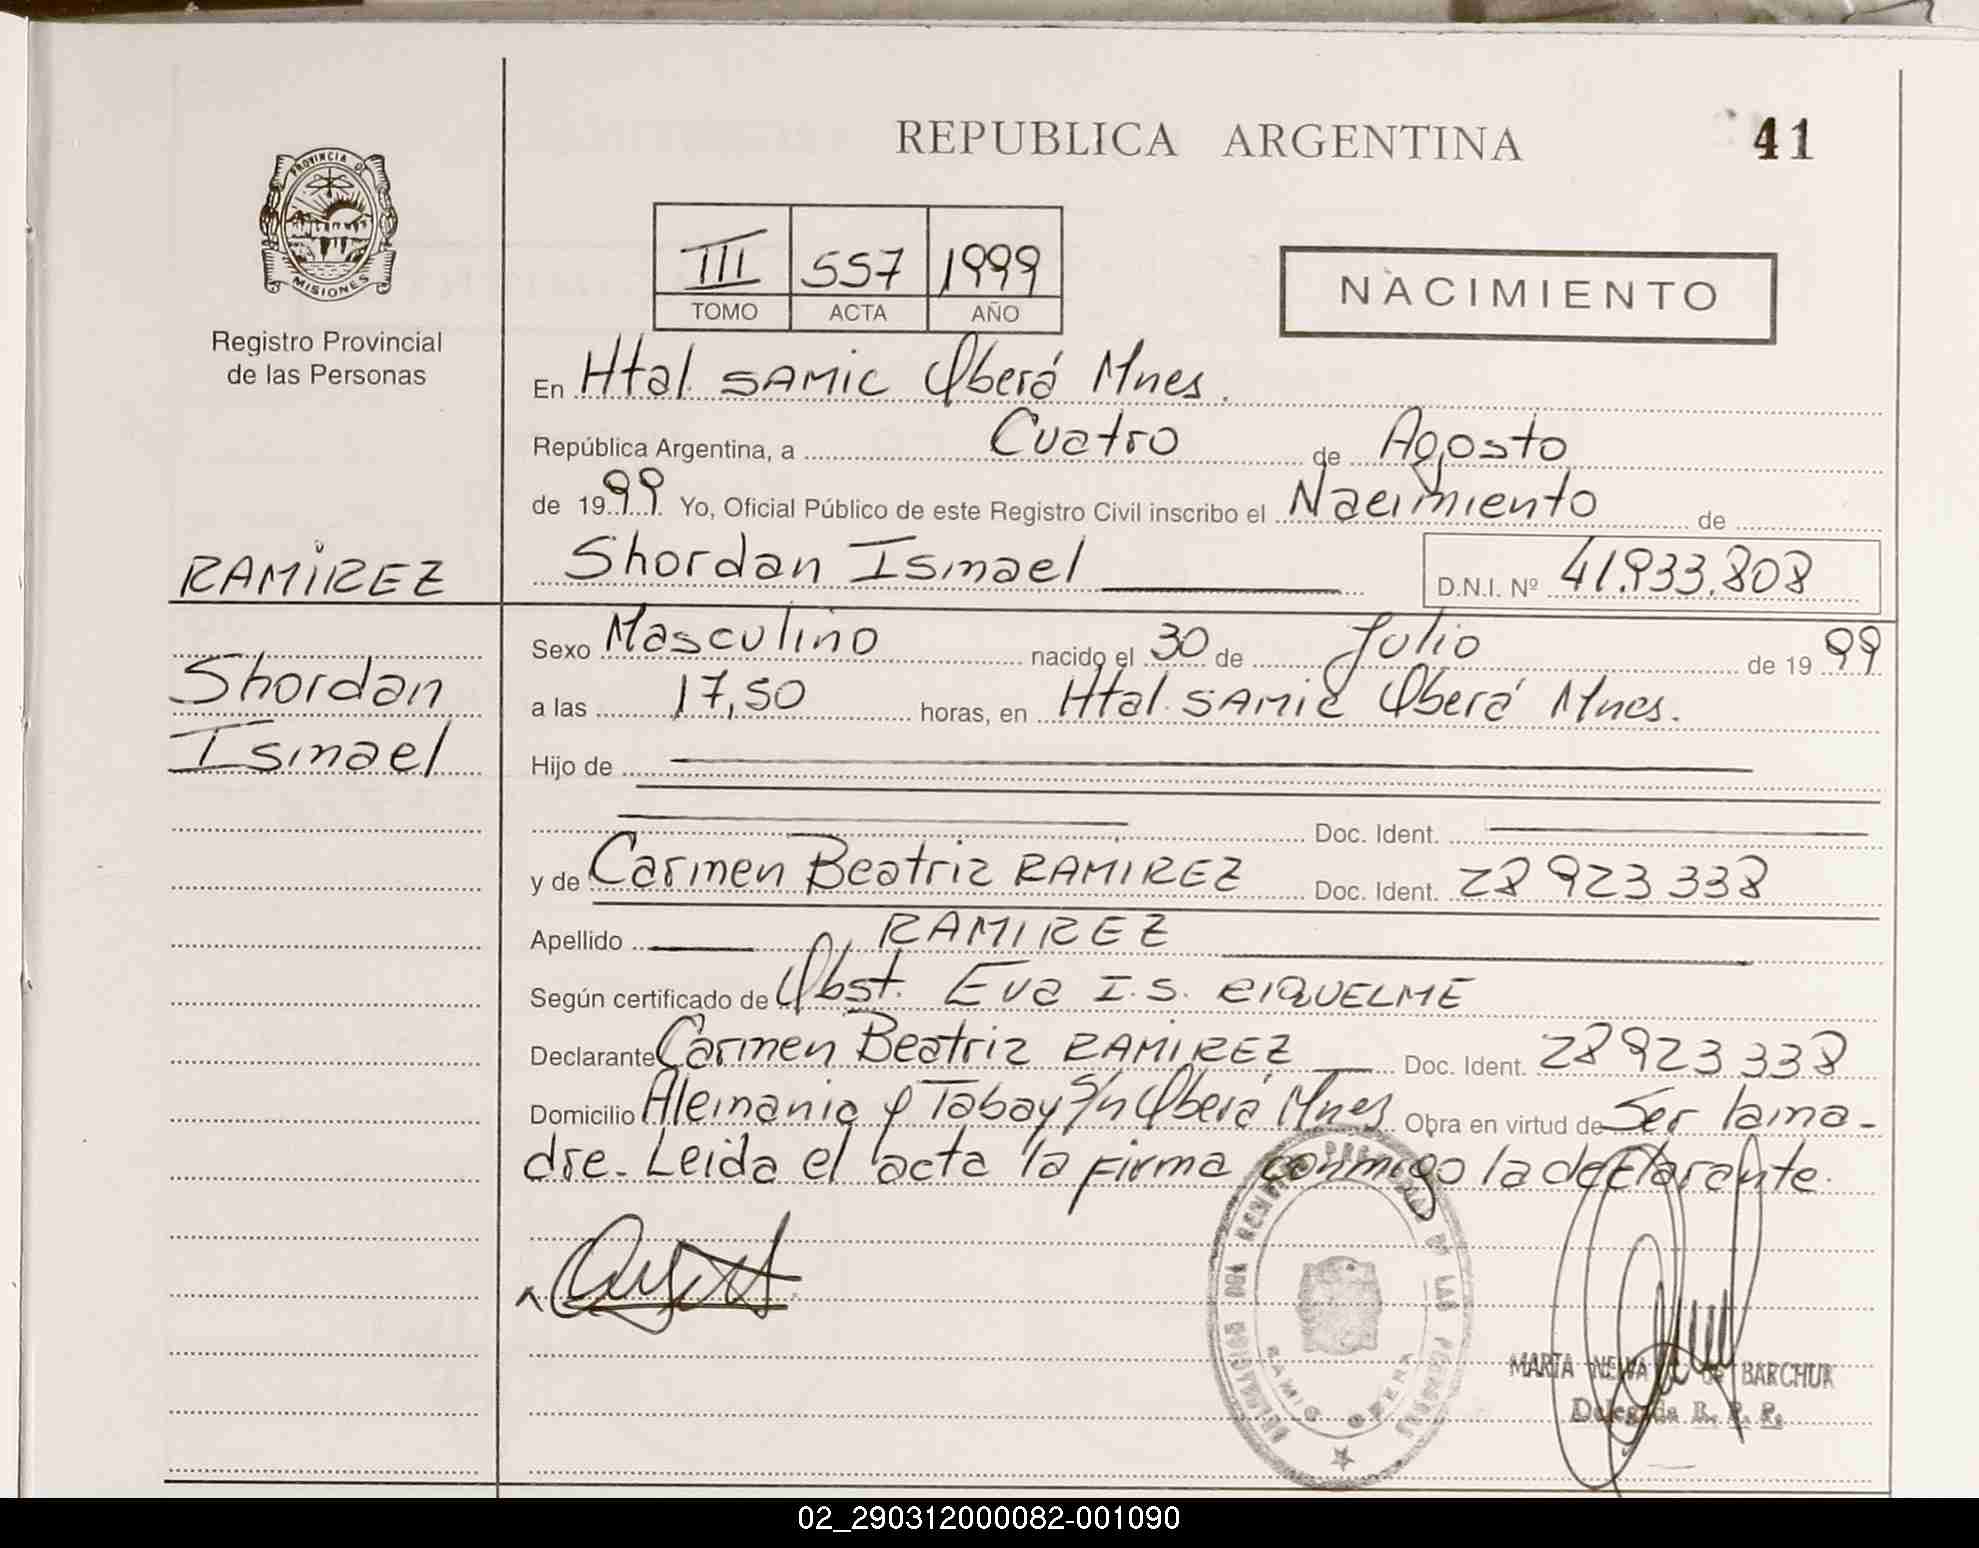 REPUBLICA ARGENTINA
41
PROVINCIA DE
MISIONES
Registro Provincial
de las Personas
III 557 1999
TOMO ACTA AÑO
NACIMIENTO
En Htal. SAMIC Oberá Mnes.
República Argentina, a Cuatro de Agosto
de 1999. Yo, Oficial Público de este Registro Civil inscribo el Nacimiento de
RAMIREZ
Shordan Ismael D.N.I. Nº 41.933.808
Shordan
Ismael
Sexo Masculino nacido el 30 de Julio de 1999
a las 17,50 horas, en Htal. SAMIC Oberá Mnes.
Hijo de
Doc. Ident.
y de Carmen Beatriz RAMIREZ Doc. Ident. 28 923 338
Apellido RAMIREZ
Según certificado de Obst. Eva I.S. RIQUELME
Declarante Carmen Beatriz RAMIREZ Doc. Ident. 28 923 338
Domicilio Alemania y Tabay S/n Oberá Mnes Obra en virtud de Ser la ma-
dre. Leida el acta la firma conmigo la declarante.
MARTA BARCHUK
Delegada R. P. P.
02_290312000082-001090